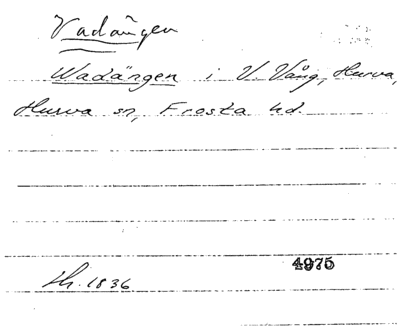 Vadängen
Wadängen i V. Väng, Hurva,
Hurva sn, Frosta hd.
4975
Lh. 1836